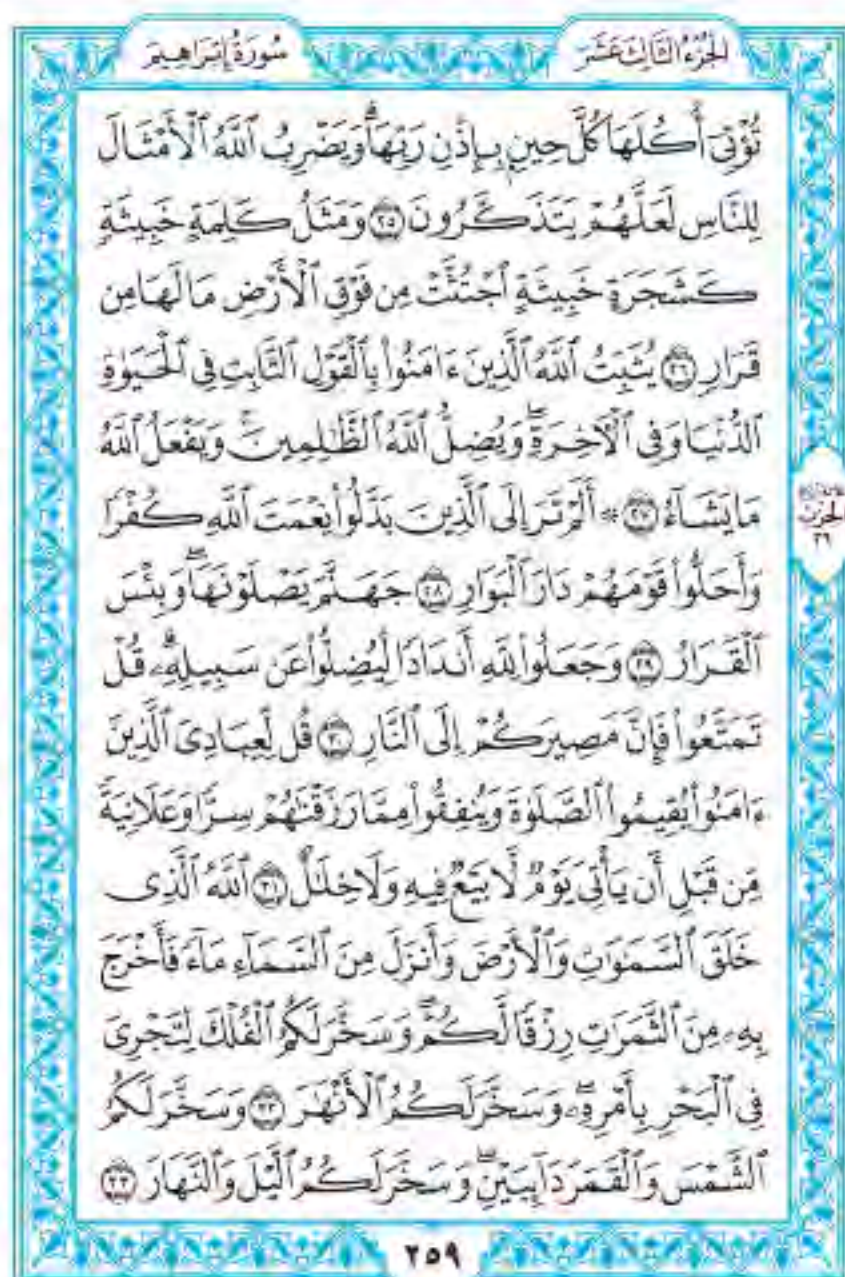 الجزء الثالث عشر
سورة إبراهيم
تُؤْتِىٓ أُكُلَهَا كُلَّ حِينِۭ بِإِذْنِ رَبِّهَاۗ وَيَضْرِبُ ٱللَّهُ ٱلْأَمْثَالَ
لِلنَّاسِ لَعَلَّهُمْ يَتَذَكَّرُونَ ٢٥ وَمَثَلُ كَلِمَةٍ خَبِيثَةٍ
كَشَجَرَةٍ خَبِيثَةٍ ٱجْتُثَّتْ مِن فَوْقِ ٱلْأَرْضِ مَا لَهَا مِن
قَرَارٍ ٢٦ يُثَبِّتُ ٱللَّهُ ٱلَّذِينَ ءَامَنُوا۟ بِٱلْقَوْلِ ٱلثَّابِتِ فِى ٱلْحَيَوٰةِ
ٱلدُّنْيَا وَفِى ٱلْءَاخِرَةِۖ وَيُضِلُّ ٱللَّهُ ٱلظَّٰلِمِينَۚ وَيَفْعَلُ ٱللَّهُ
مَا يَشَآءُ ٢٧ ۞ أَلَمْ تَرَ إِلَى ٱلَّذِينَ بَدَّلُوا۟ نِعْمَتَ ٱللَّهِ كُفْرًا
الحزب
٢٦
وَأَحَلُّوا۟ قَوْمَهُمْ دَارَ ٱلْبَوَارِ ٢٨ جَهَنَّمَ يَصْلَوْنَهَاۖ وَبِئْسَ
ٱلْقَرَارُ ٢٩ وَجَعَلُوا۟ لِلَّهِ أَندَادًا لِّيُضِلُّوا۟ عَن سَبِيلِهِۦۗ قُلْ
تَمَتَّعُوا۟ فَإِنَّ مَصِيرَكُمْ إِلَى ٱلنَّارِ ٣٠ قُل لِّعِبَادِىَ ٱلَّذِينَ
ءَامَنُوا۟ يُقِيمُوا۟ ٱلصَّلَوٰةَ وَيُنفِقُوا۟ مِمَّا رَزَقْنَٰهُمْ سِرًّا وَعَلَانِيَةً
مِّن قَبْلِ أَن يَأْتِىَ يَوْمٌ لَّا بَيْعٌ فِيهِ وَلَا خِلَٰلٌ ٣١ ٱللَّهُ ٱلَّذِى
خَلَقَ ٱلسَّمَٰوَٰتِ وَٱلْأَرْضَ وَأَنزَلَ مِنَ ٱلسَّمَآءِ مَآءً فَأَخْرَجَ
بِهِۦ مِنَ ٱلثَّمَرَٰتِ رِزْقًا لَّكُمْۖ وَسَخَّرَ لَكُمُ ٱلْفُلْكَ لِتَجْرِىَ
فِى ٱلْبَحْرِ بِأَمْرِهِۦۖ وَسَخَّرَ لَكُمُ ٱلْأَنْهَٰرَ ٣٢ وَسَخَّرَ لَكُمُ
ٱلشَّمْسَ وَٱلْقَمَرَ دَآئِبَيْنِۖ وَسَخَّرَ لَكُمُ ٱلَّيْلَ وَٱلنَّهَارَ ٣٣
٢٥٩